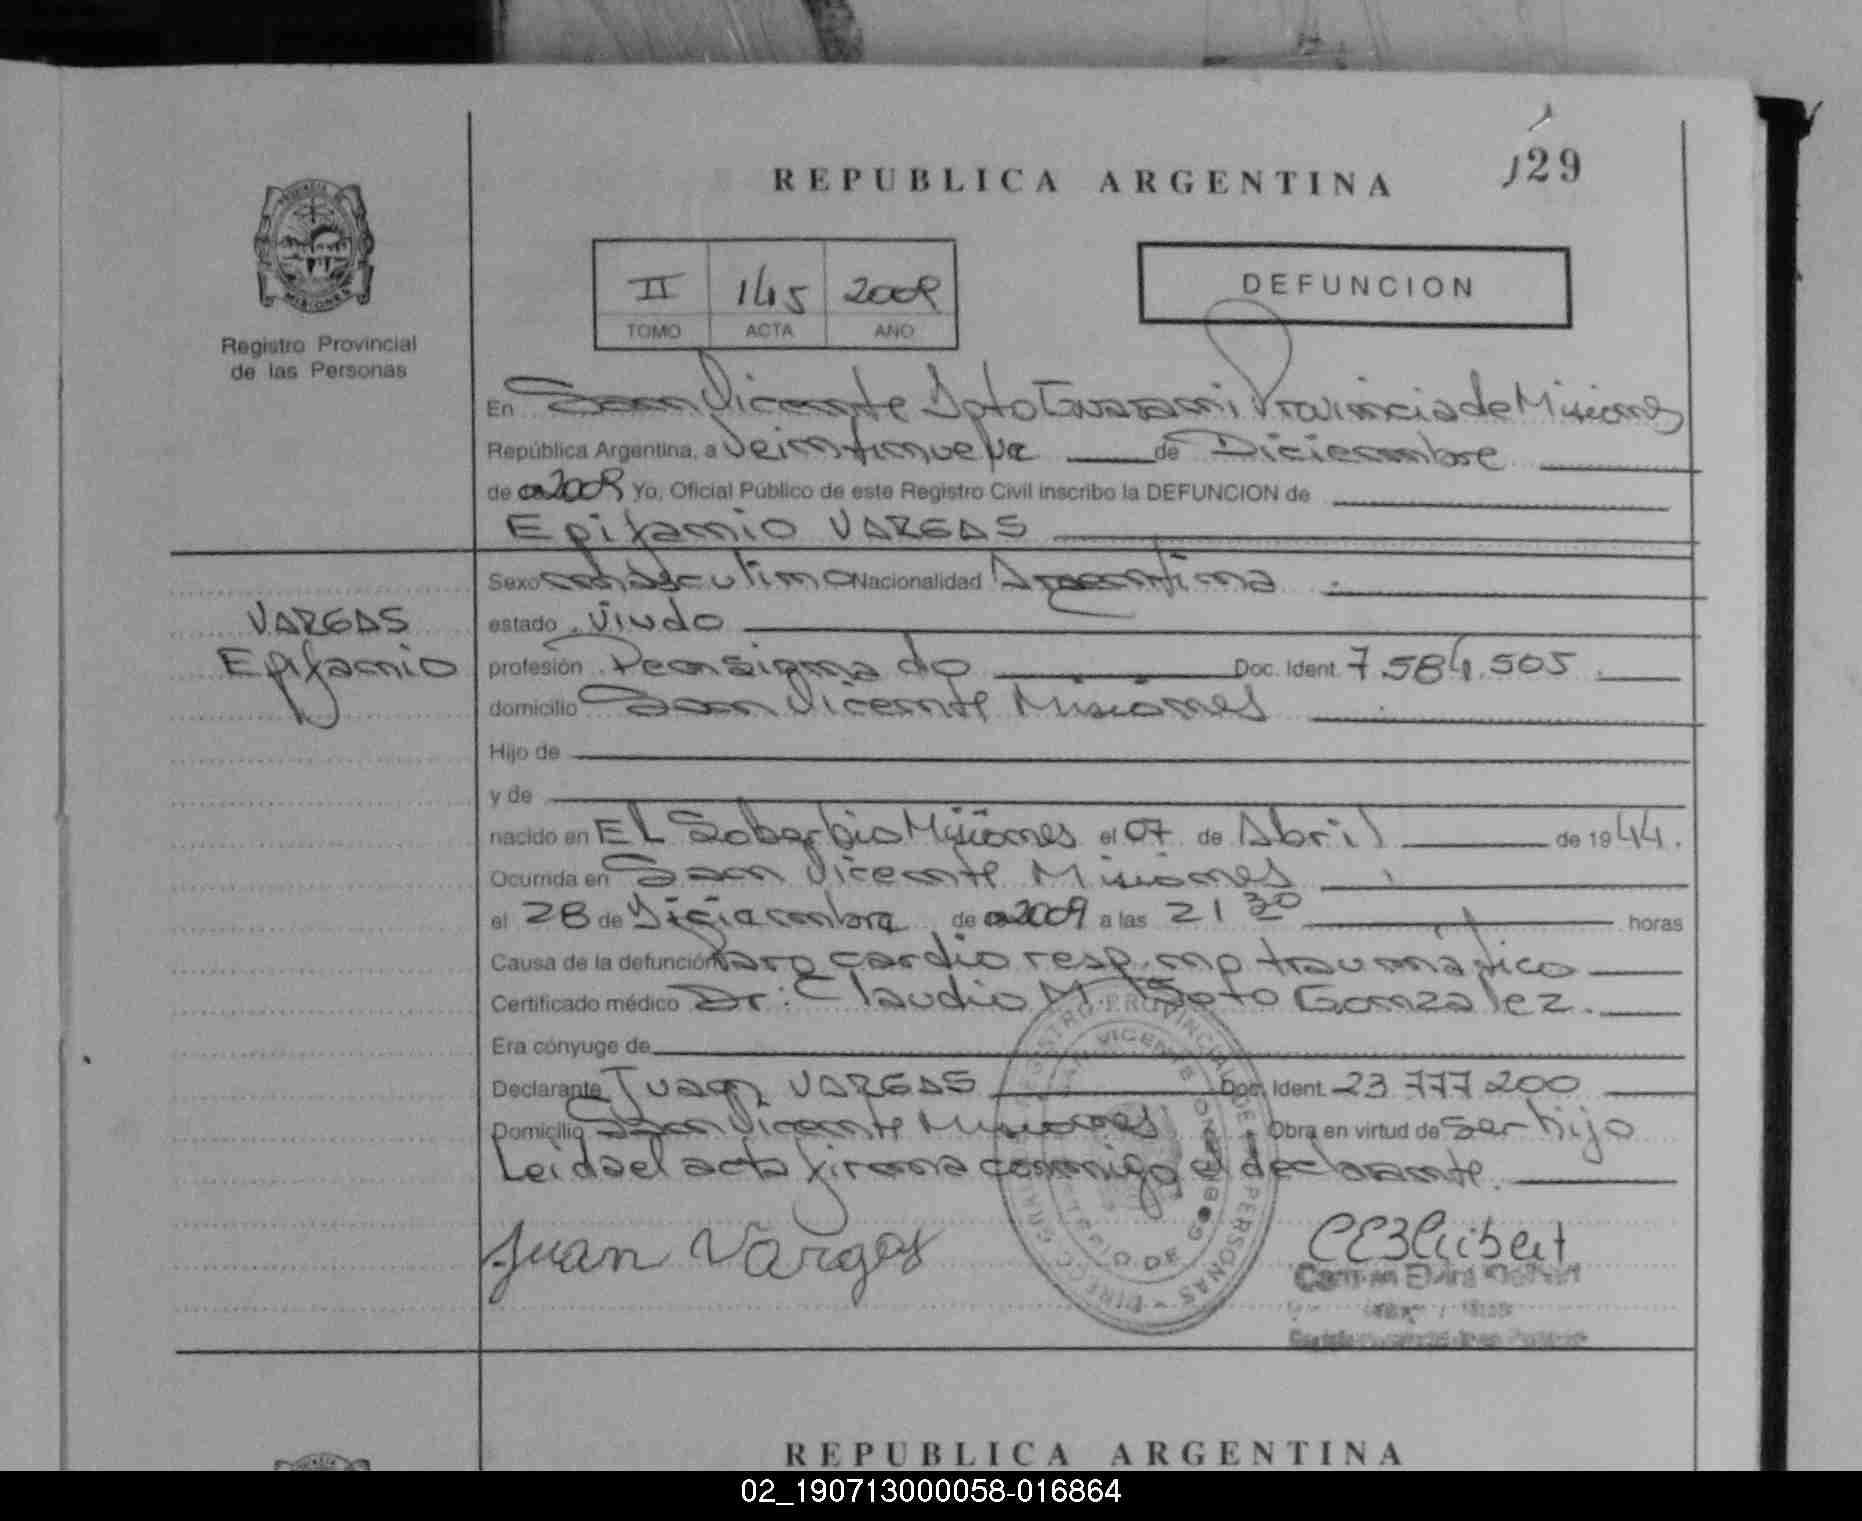 129
REPUBLICA ARGENTINA
II 145 2009
TOMO ACTA AÑO
DEFUNCION
Registro Provincial
de las Personas
En San Vicente Dpto Guarani Provincia de Misiones
República Argentina, a Veintinueve de Diciembre
de 2009 Yo, Oficial Público de este Registro Civil inscribo la DEFUNCION de
Epifanio VARGAS
Sexo masculino Nacionalidad Argentina
VARGAS
Epifanio
estado Viudo
profesión Pensionado Doc. Ident. 7.584.505
domicilio San Vicente Misiones
Hijo de
y de
nacido en EL Soberbio Misiones el 07 de Abril de 1944.
Ocurrida en San Vicente Misiones
el 28 de Diciembre de 2009 a las 21 30 horas
Causa de la defunción Paro cardio resp. no traumatico
Certificado médico Dr: Claudio M. Soto Gonzalez.
Era cónyuge de
Declarante Juan VARGAS Doc. Ident. 23 777 200
Domicilio San Vicente Misiones Obra en virtud de ser hijo
Leida el acta firma conmigo el declarante.
Juan Vargas
REGISTRO PROVINCIAL DE PERSONAS - DIRECC
SAN VICENTE
REPUBLICA ARGENTINA
02_190713000058-016864